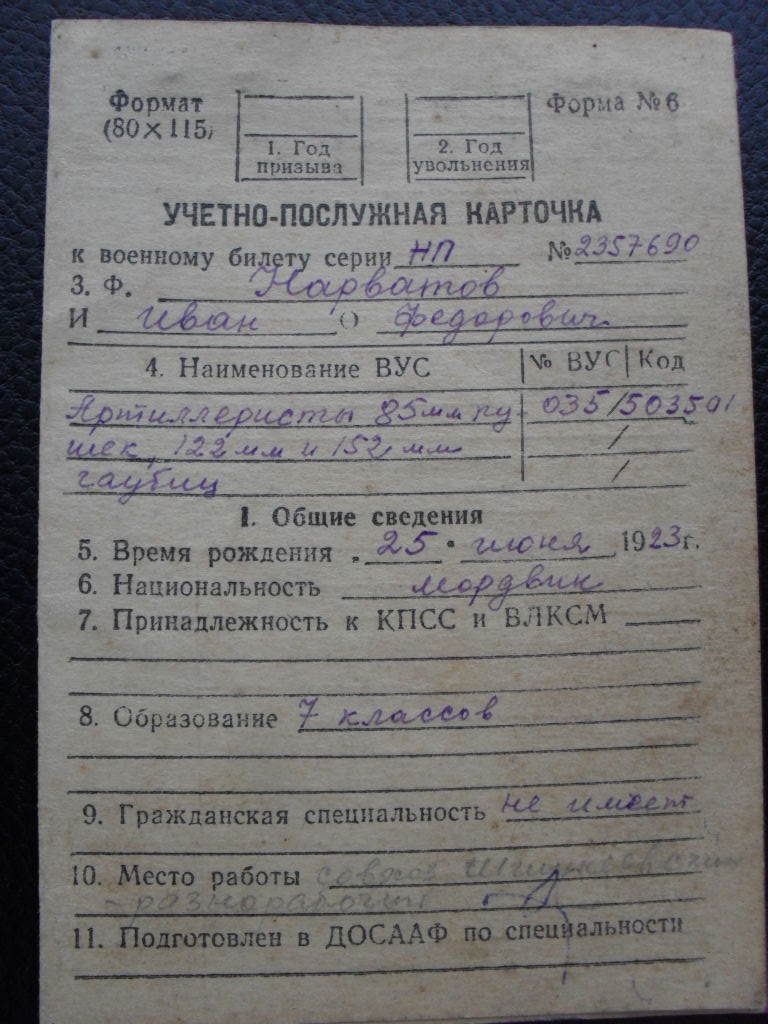 Формат
(80×115)
Форма № 6
1. Год
призыва
2. Год
увольнения
УЧЕТНО-ПОСЛУЖНАЯ КАРТОЧКА
к военному билету серии НП № 2357690
3. Ф. Нарватов
И Иван О Федорович
4. Наименование ВУС № ВУС Код
Артиллеристы 85мм пу 035/503501
шек, 122 мм и 152 мм /
гаубиц /
I. Общие сведения
5. Время рождения „25" июня 1923 г.
6. Национальность мордвин
7. Принадлежность к КПСС и ВЛКСМ
8. Образование 7 классов
9. Гражданская специальность не имеет
10. Место работы совхоз
- разнорабочий
11. Подготовлен в ДОСААФ по специальности